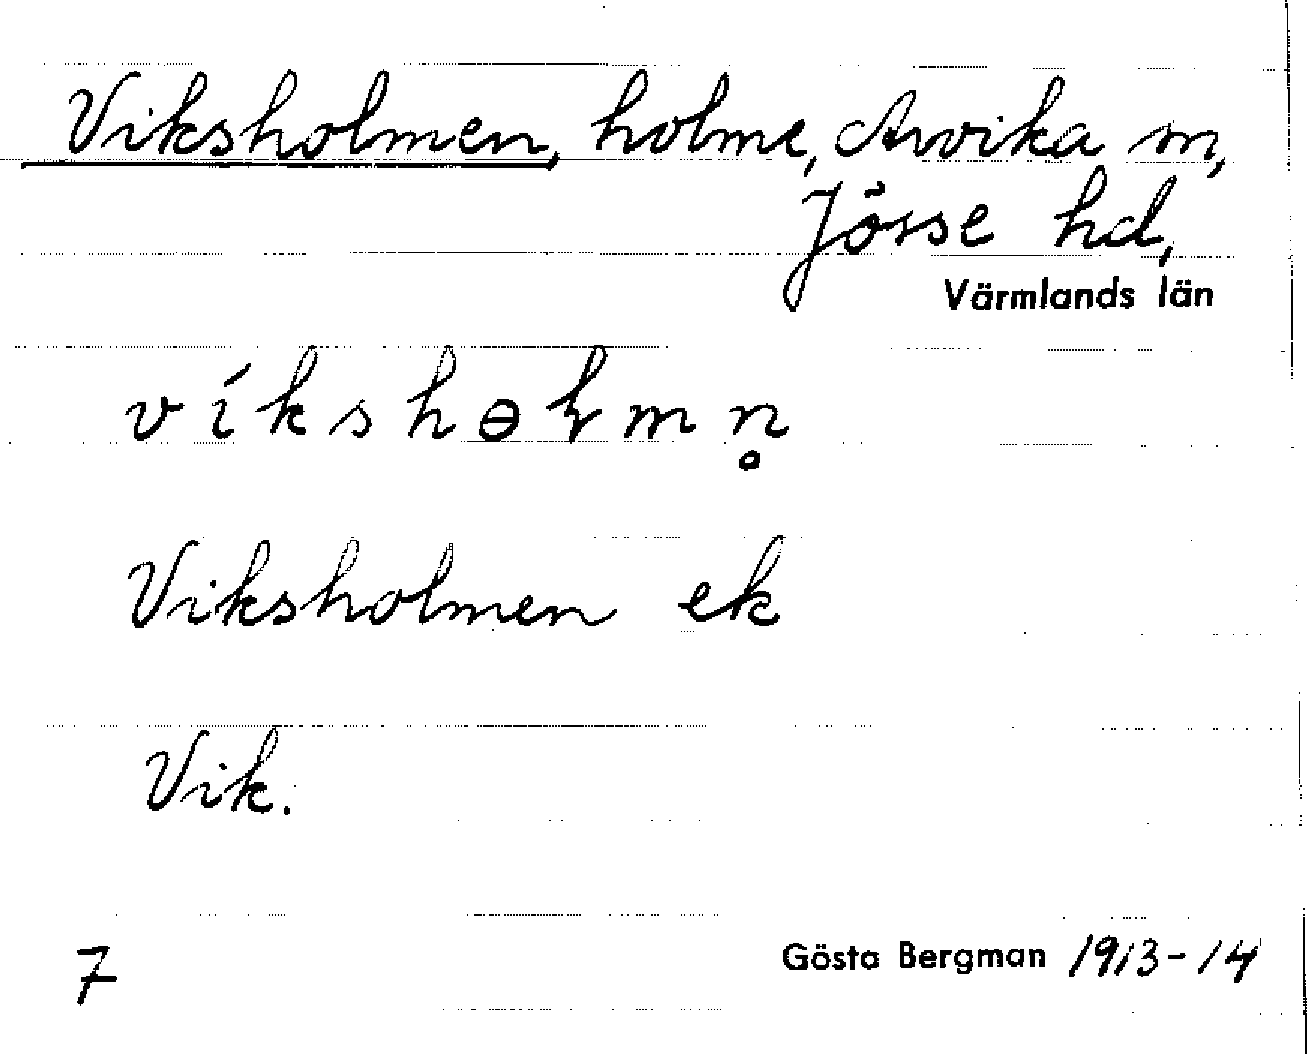 Viksholmen, holme, Arvika m,
Jösse hd,
Värmlands län
víkshɵɽmn̥
Viksholmen ek
Vik.
7
Gösta Bergman 1913-14